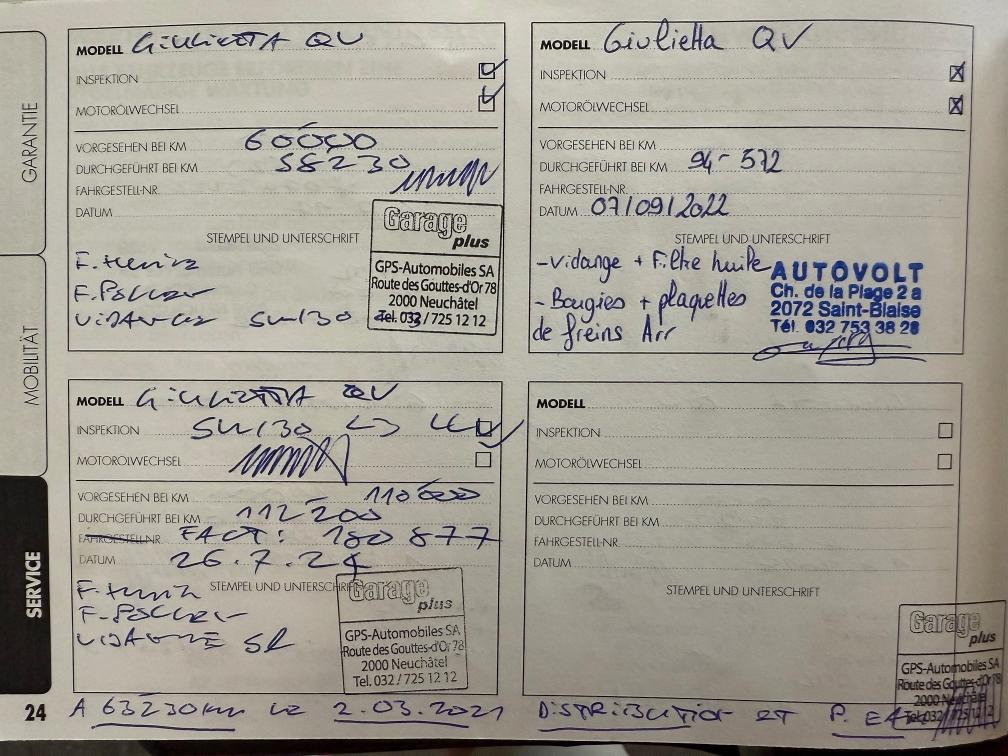 GARANTIE
MOBILITÄT
SERVICE
24
MODELL GiULiETTA QV
INSPEKTION
MOTORÖLWECHSEL
VORGESEHEN BEI KM 60'000
DURCHGEFÜHRT BEI KM 58230
FAHRGESTELL-NR.
DATUM
STEMPEL UND UNTERSCHRIFT
Garage
plus
GPS-Automobiles SA
Route des Gouttes-d'Or 78
2000 Neuchâtel
Tel. 032 / 725 12 12
F.
F. Pollen
VIDANGE 5W/30
MODELL Giulietta QV
INSPEKTION
MOTORÖLWECHSEL
VORGESEHEN BEI KM
DURCHGEFÜHRT BEI KM 94-572
FAHRGESTELL-NR.
DATUM 07/09/2022
STEMPEL UND UNTERSCHRIFT
-Vidange + Filtre huile
- Bougies + plaquettes
de freins Arr
AUTOVOLT
Ch. de la Plage 2 a
2072 Saint-Blaise
Tél. 032 753 38 28
MODELL GiULiETTA QV
INSPEKTION 5W/30
MOTORÖLWECHSEL
VORGESEHEN BEI KM 110'000
DURCHGEFÜHRT BEI KM 112'200
FAHRGESTELL-NR. FACT: 180 877
DATUM 26.7.24
STEMPEL UND UNTERSCHRIFT
F.
F. Pollen
VIDANGE
Garage
plus
GPS-Automobiles SA
Route des Gouttes-d'Or 78
2000 Neuchâtel
Tel. 032 / 725 12 12
MODELL
INSPEKTION
MOTORÖLWECHSEL
VORGESEHEN BEI KM
DURCHGEFÜHRT BEI KM
FAHRGESTELL-NR.
DATUM
STEMPEL UND UNTERSCHRIFT
Garage
plus
GPS-Automobiles SA
Route des Gouttes-d'Or 78
2000 Neuchâtel
A 63230 Km LE 2.03.2021 DISTRIBUTION ET P. EAU